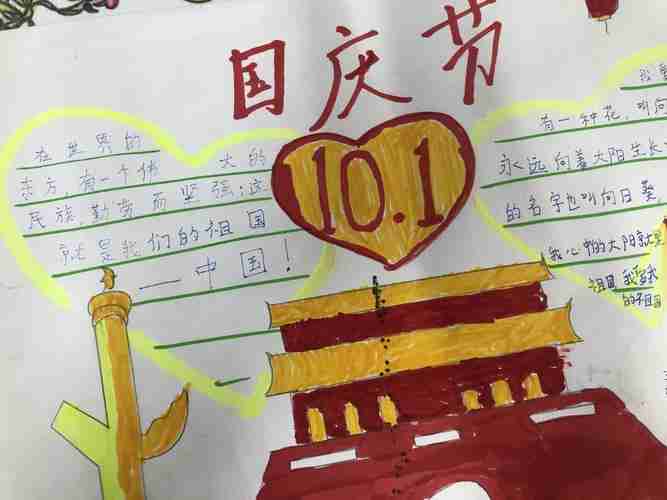 国庆节
10.1
在世界的
东方,有一个伟大的
民族,勤劳而坚强;这
就是我们的祖国
——中国!
有一种花,叫向
永远向着太阳生长
的名字也叫向日葵
我心中的太阳就是
祖国我爱我
的祖国